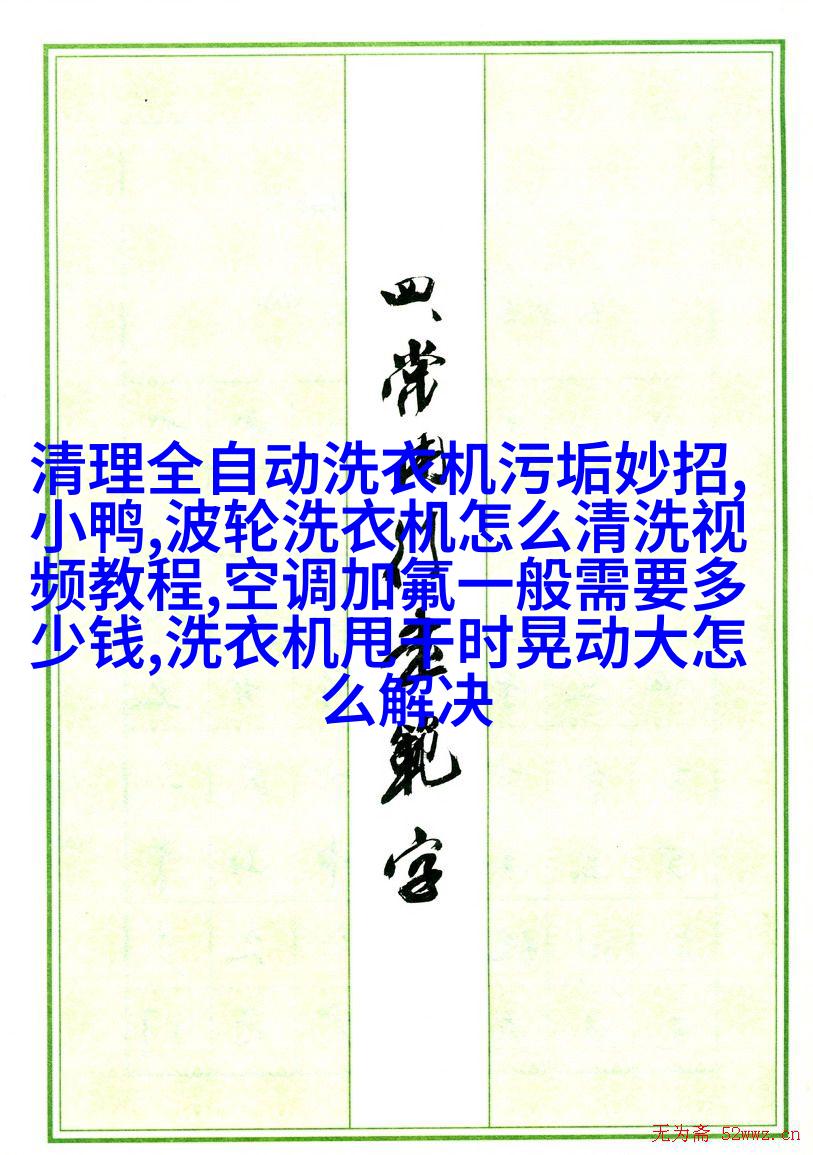 四、常用行书规範字
清理全自动洗衣机污垢妙招,
小鸭,波轮洗衣机怎么清洗视
频教程,空调加氟一般需要多
少钱,洗衣机甩干时晃动大怎
么解决
无为斋 52wwz.cn